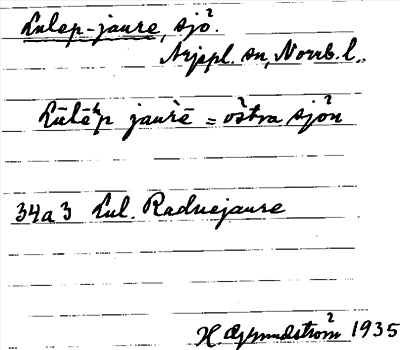 Lulep-jaure, sjö.
Arjepl. sn, Norrb. l.
Lūlēʰp jaurē = östra sjön
34a3 Lul. Radnejaure
H. Gynndström 1935